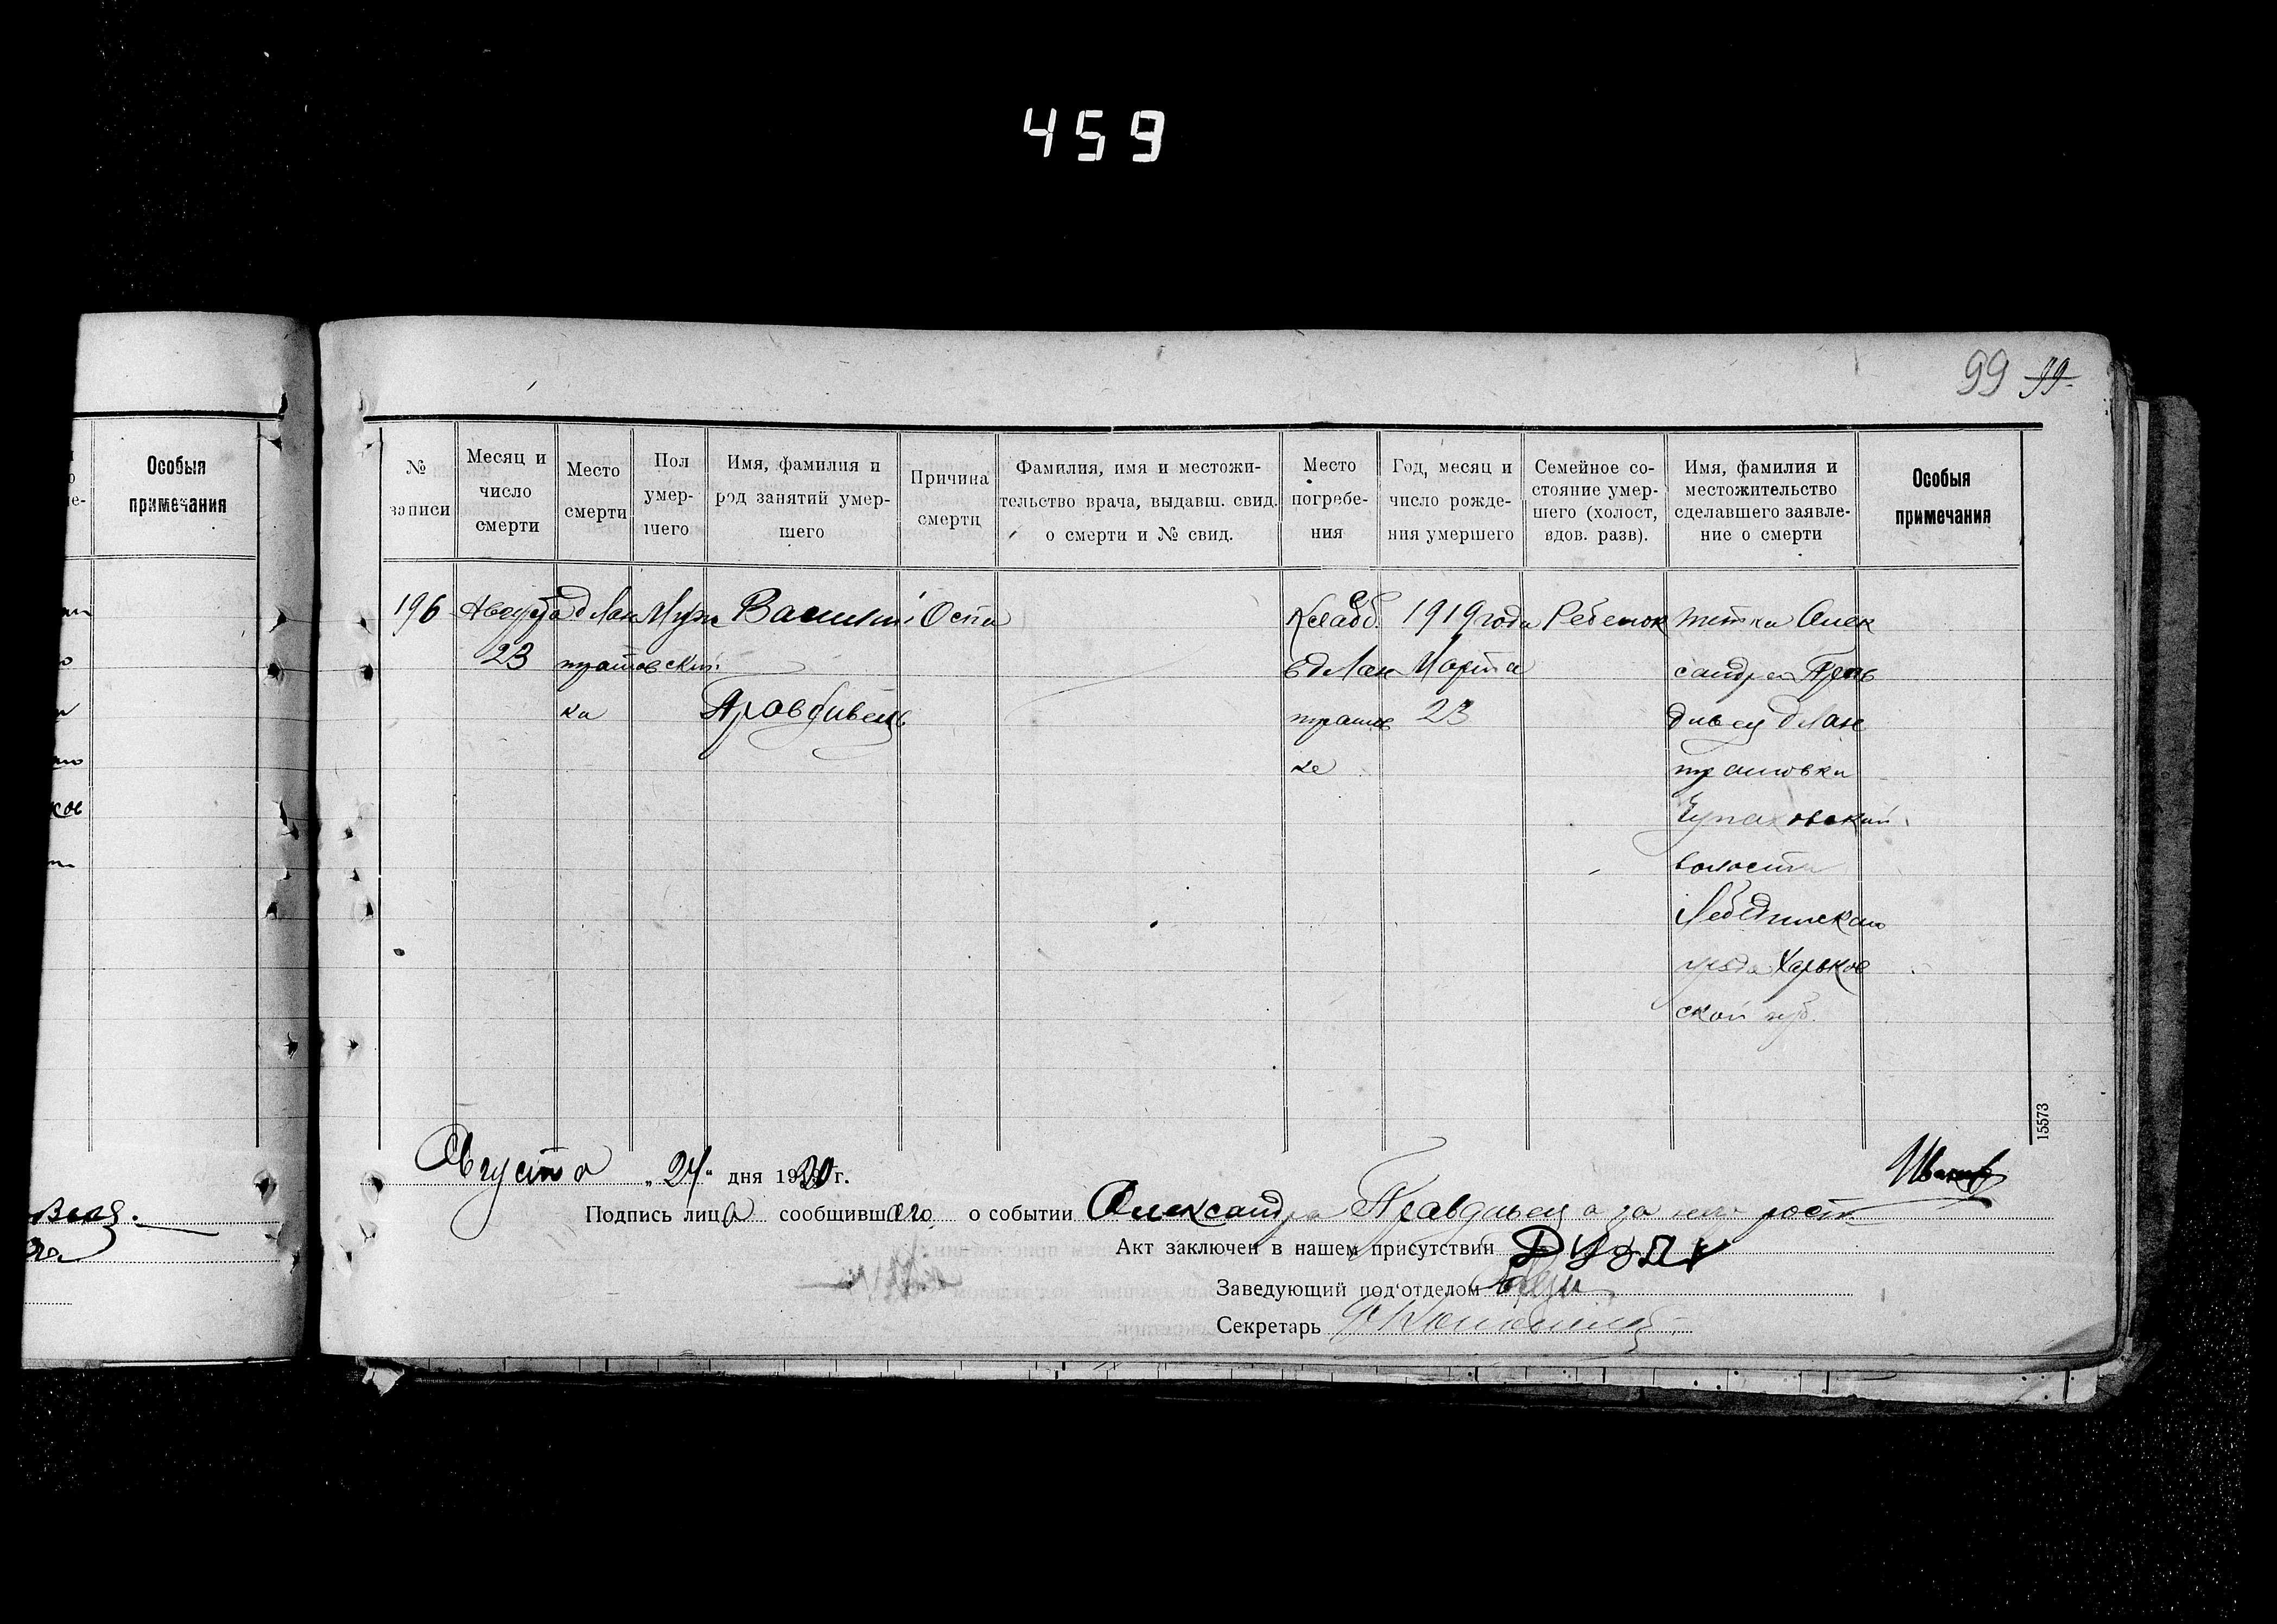 459
99 99
Особыя
примечания
№
записи
Месяц и
число
смерти
Место
смерти
Пол
умер-
шего
Имя, фамилия и
род занятий умер-
шего
Причина
смерти
Фамилия, имя и местожи-
тельство врача, выдавш. свид.
о смерти и № свид.
Место
погребе-
ния
Год, месяц и
число рожде-
ния умершего
Семейное со-
стояние умер-
шего (холост,
вдов. разв).
Имя, фамилия и
местожительство
сделавшего заявле-
ние о смерти
Особыя
примечания
196
Августа
23
д Лан
тратовский
ка
Муж
Василий
Правдивець
Оспа
Кладб.
в д Лан
тратов
ке
1919 года
Марта
23
Ребенок
тетка Алек
сандра Прав
дивец д Лан
тратовки
Чупаховской
волости
Лебединскаго
уезда Харьков
ской губ.
15573
Августа „24“ дня 1920 г.
Подпись лица сообщившаго о событии Александра Правдивец а за нею рост
Иванов
Акт заключен в нашем присутствии
Заведующий под'отделом
Секретарь